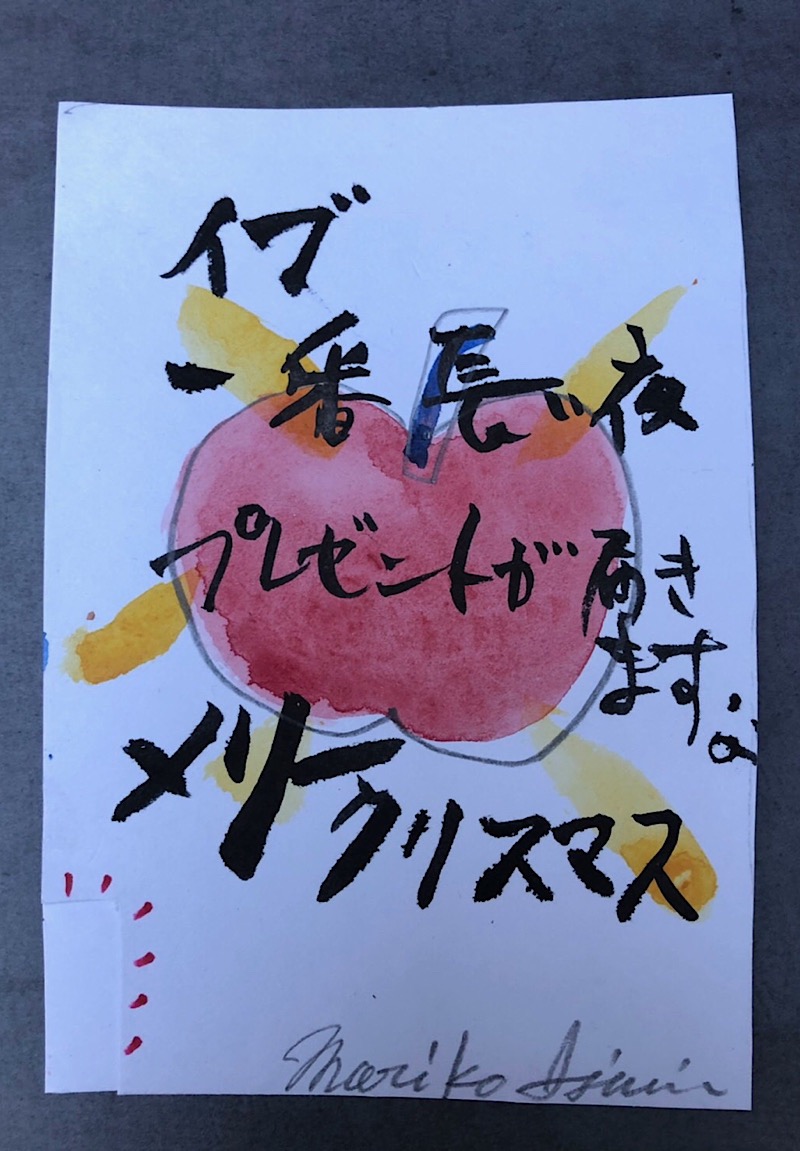 イブ
一番長い夜
プレゼントが届き
ますよ
メリー
クリスマス
Mariko